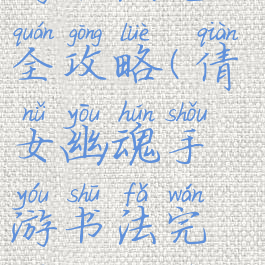 quán gōng lüè qiàn
全攻略(倩
nǚ yōu hún shǒu
女幽魂手
yóu shū fǎ wán
游书法完